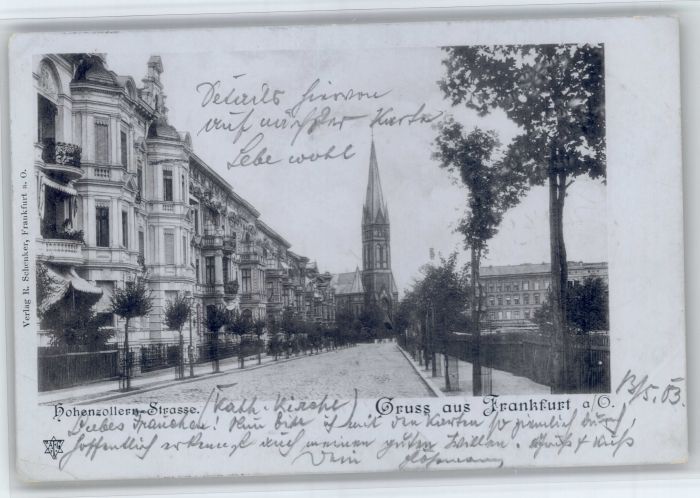 Details hiervon
auf nächster Karte
Lebe wohl
Verlag R. Schenker, Frankfurt a. O.
Hohenzollern-Strasse. (Kath. Kirche)
Gruss aus Frankfurt a/O.
13/5.03.
Liebes Frauchen! Nun bin ich mit den Karten so ziemlich durch,
hoffentlich erkennst auch meinen guten Willen. Gruß & Kuß
Dein